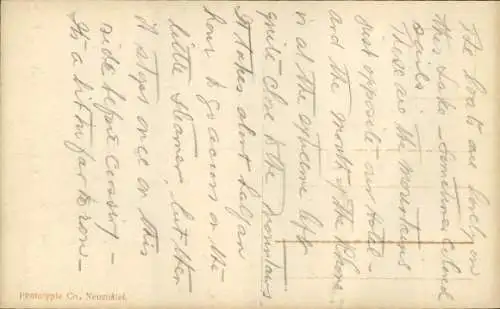 The boats are lovely on
this Lake - sometimes colored
sails. These are the mountains
just opposite our hotel -
and the mouth of the Rhone
is at the extreme left
quite close to the mountains.
It takes about half an
hour to go across on the
little steamer, but then
it stops once on this
side before crossing -
It's a bit too far to row -
Phototypie Co., Neuchâtel.